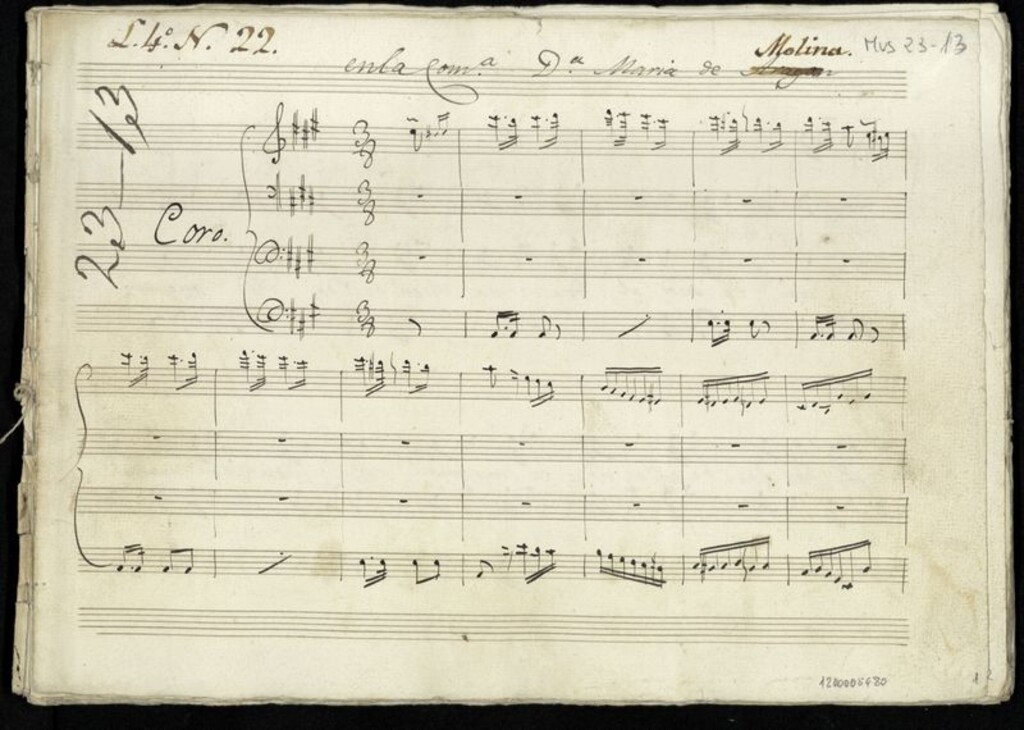 L. 4.º N. 22.
Molina. Mus 23-13
en la Com.ª D.ª Maria de Aragon
23-13
Coro.
3/8
3/8
3/8
3/8
1200005680